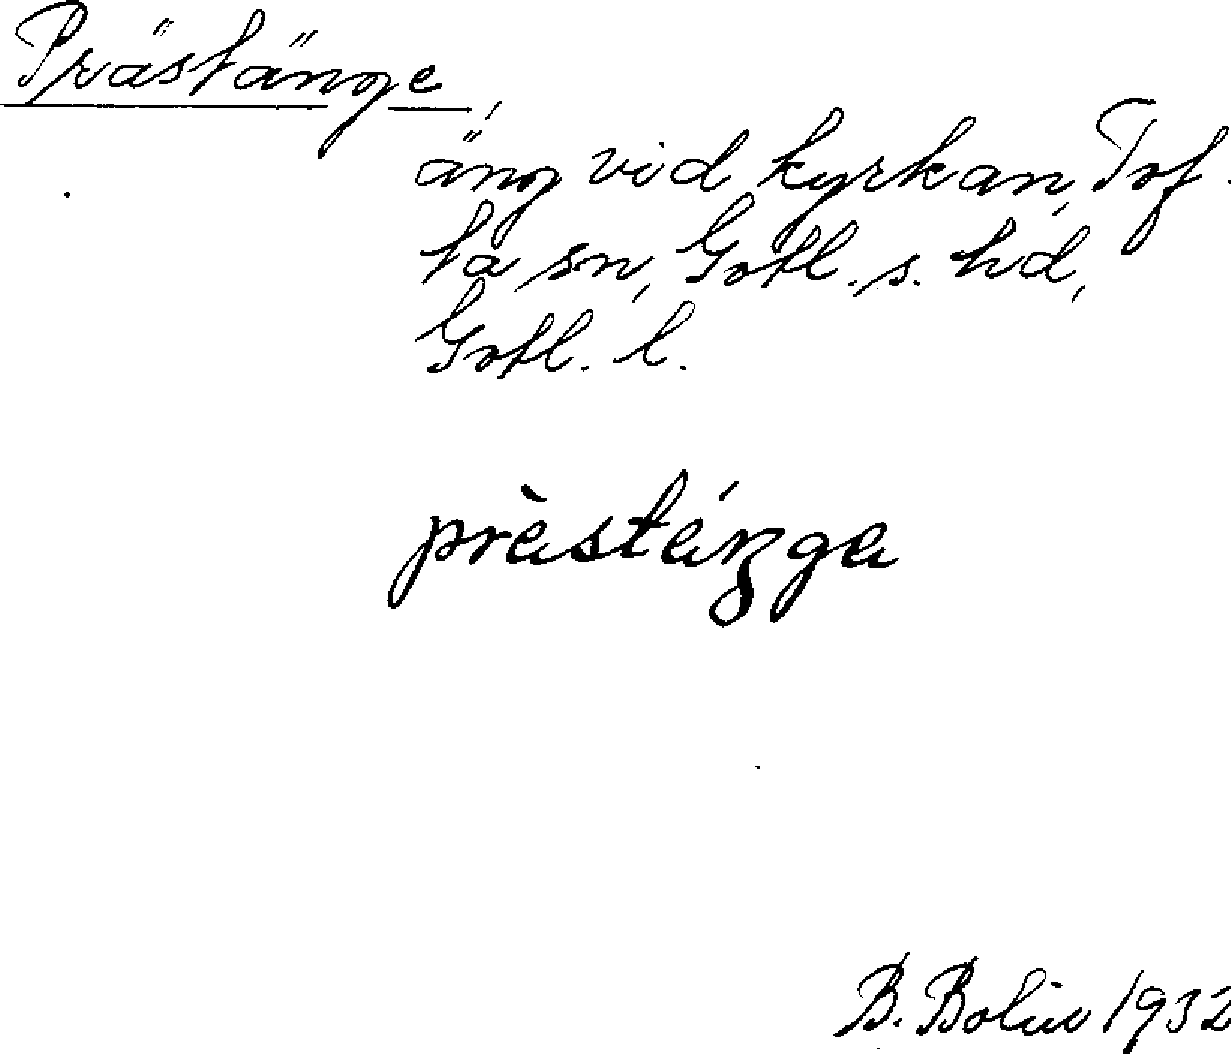 Prästänge,
äng vid kyrkan, Tof-
ta sn, Gotl. s. hd,
Gotl. l.
prèstéŋga
B. Bolin 1932